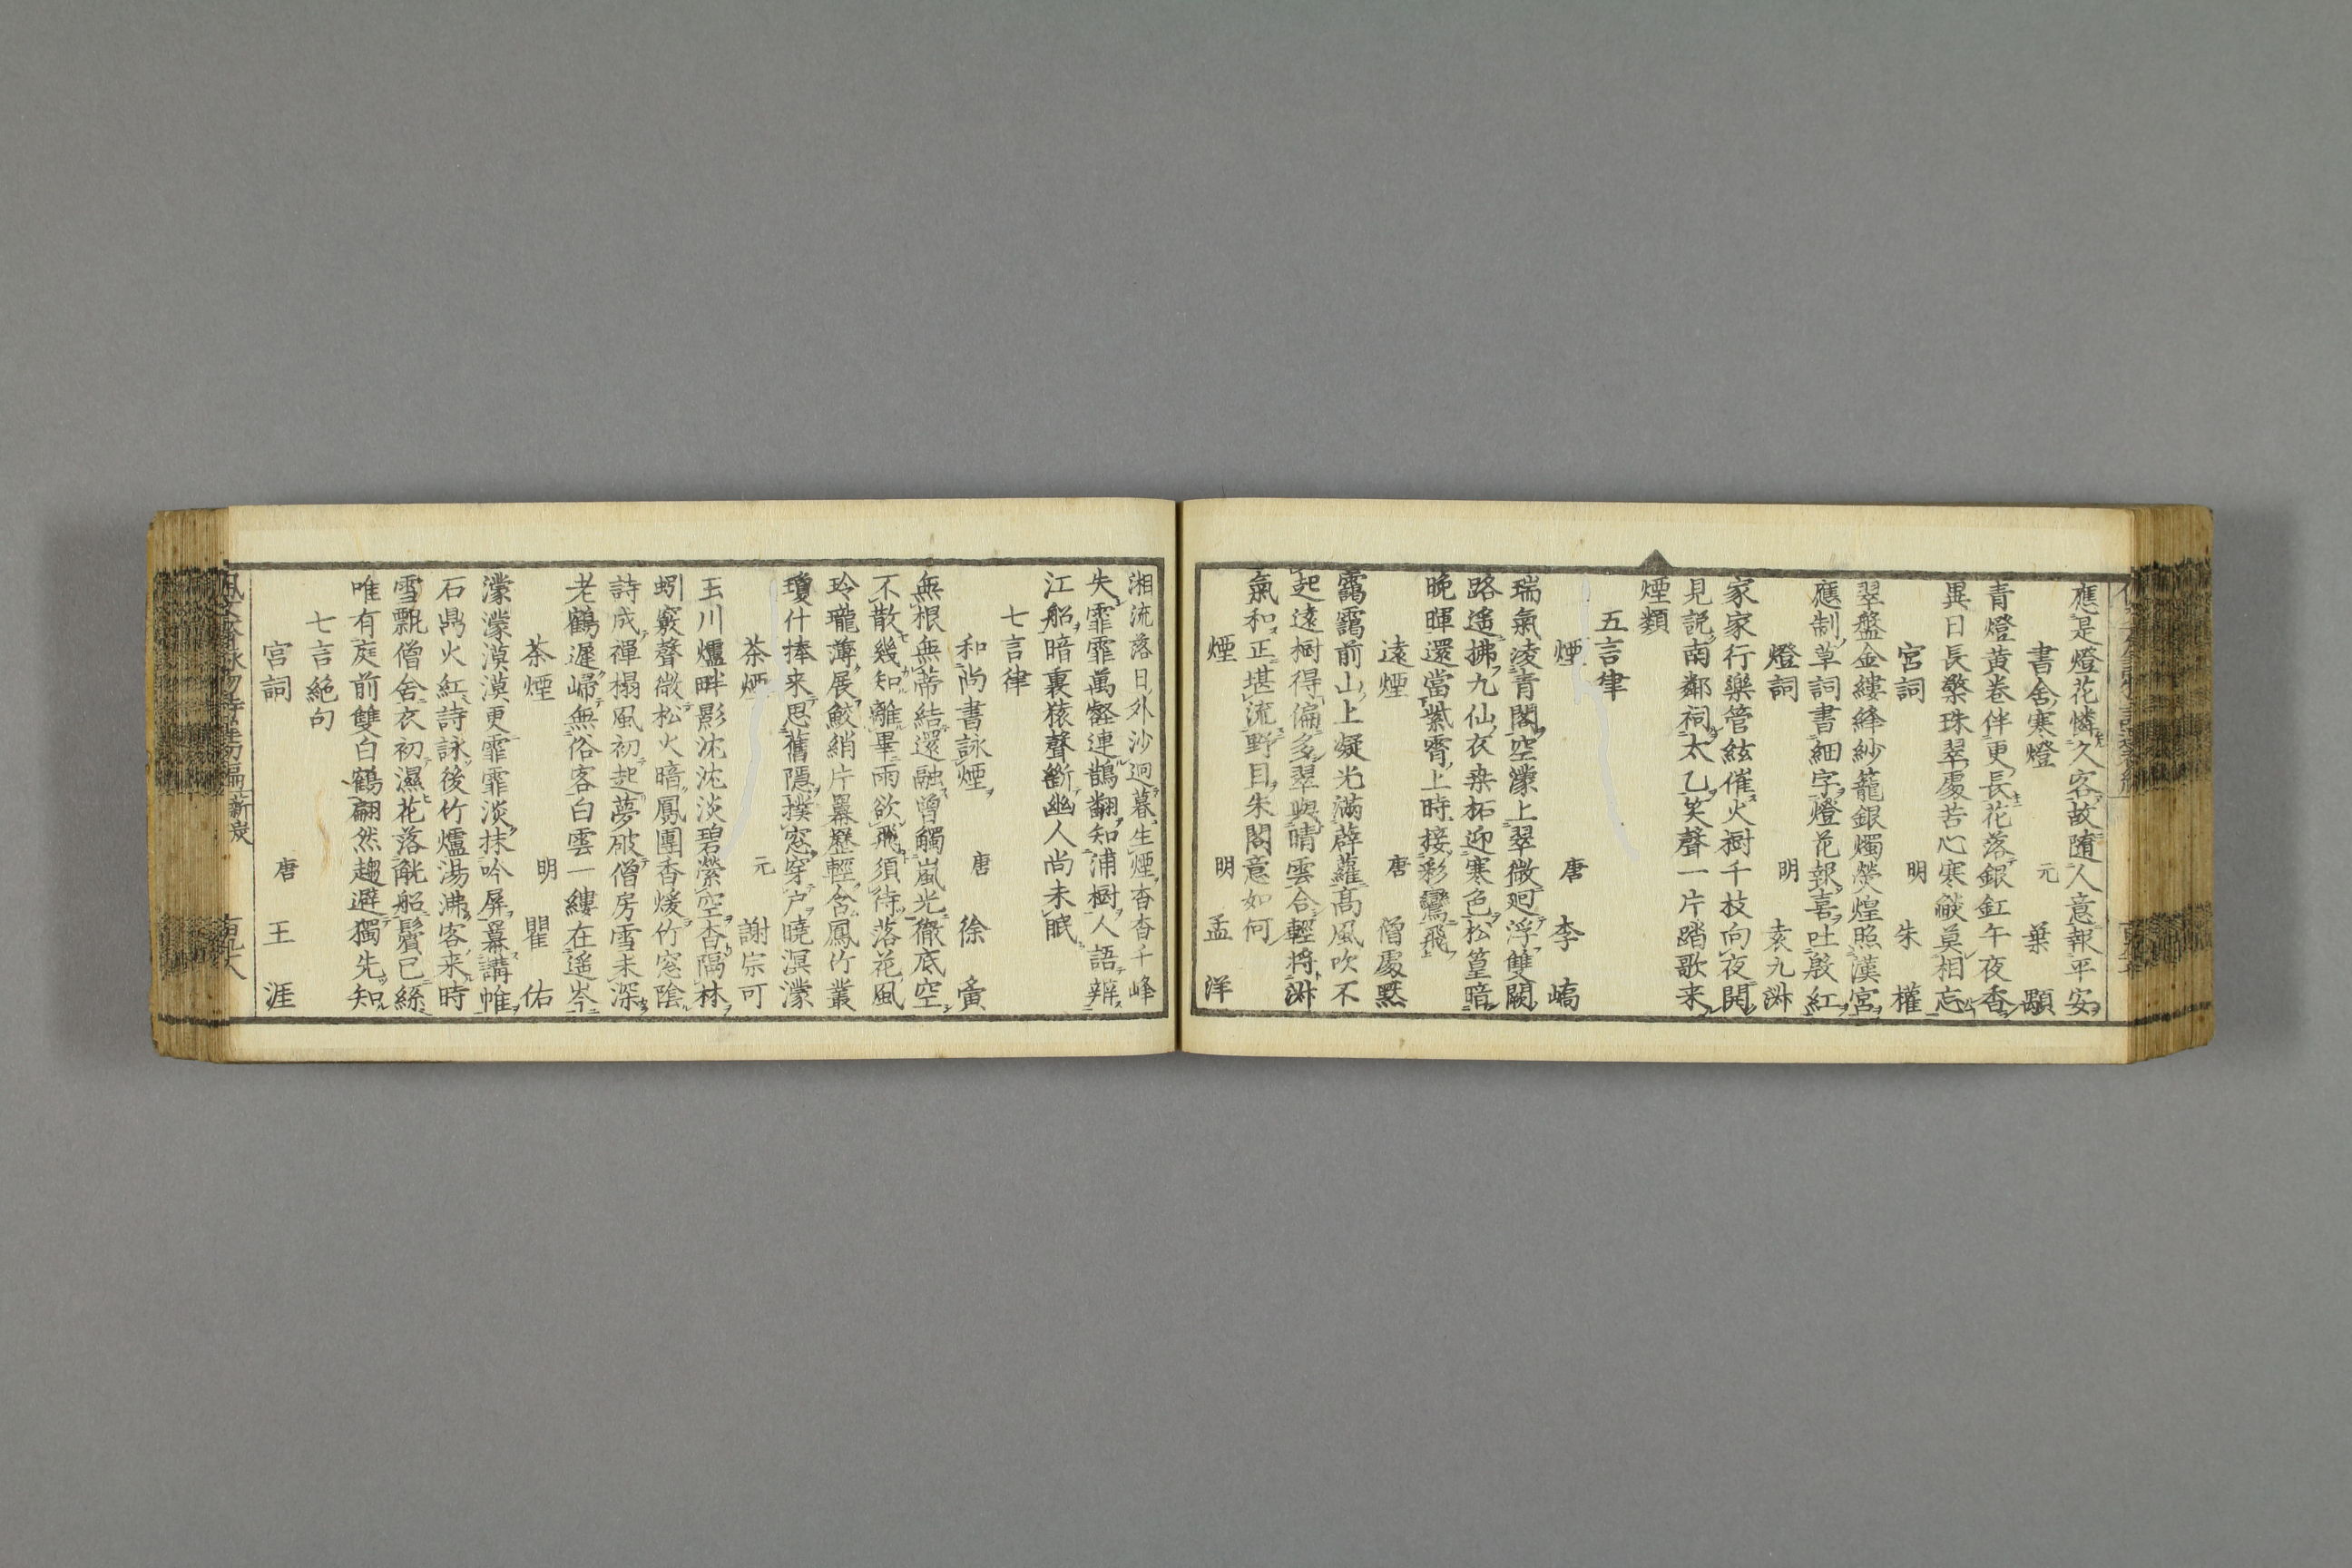 應是燈花憐久客故隨人意報平安
書舍寒燈 元 葉 顒
青燈黄卷伴更長花落銀釭午夜香
異日長檠珠翠處苦心寒燄莫相忘
宮詞 明 朱 權
翠盤金縷絳紗籠銀燭熒煌照漢宮
應制草詞書細字燈花報喜吐殷紅
燈詞 明 袁九淵
家家行樂管絃催火樹千枝向夜開
見説南鄰祠太乙笑聲一片踏歌来
煙類
五言律
煙 唐 李 嶠
瑞氣淩青閣空濛上翠微廻浮雙闕
路遥拂九仙衣桒柘迎寒色松篁暗
晩暉還當紫霄上時接彩鸞飛
遠煙 唐 僧處黙
靄靄前山上凝光滿薜蘿髙風吹不
起遠樹得偏多翠與晴雲合輕將淑
氣和正堪流野目朱閣意如何
煙 明 孟 洋
湘流落日外沙迥暮生煙杳杳千峰
失霏霏萬壑連鵲翻知浦樹人語辨
江船暗裏猿聲斷幽人尚未眠
七言律
和尚書詠煙 唐 徐 夤
無根無蒂結還融曾觸嵐光徹底空
不散幾知離畢雨欲飛須待落花風
玲瓏薄展鮫綃片羃歷輕含鳳竹叢
瓊什捧来思舊隱撲窓穿户曉溟濛
茶煙 元 謝宗可
玉川爐畔影沈沈淡碧縈空杳隔林
蚓竅聲微松火暗鳳團香煖竹窓陰
詩成禪榻風初起夢破僧房雪未深
老鶴遲歸無俗客白雲一縷在遥岑
茶煙 明 瞿 佑
濛濛漠漠更霏霏淡抹吟屏羃講帷
石鼎火紅詩詠後竹爐湯沸客来時
雪飄僧舍衣初濕花落觥船鬢已絲
唯有庭前雙白鶴翩然趨避獨先知
七言絶句
宮詞 唐 王 涯